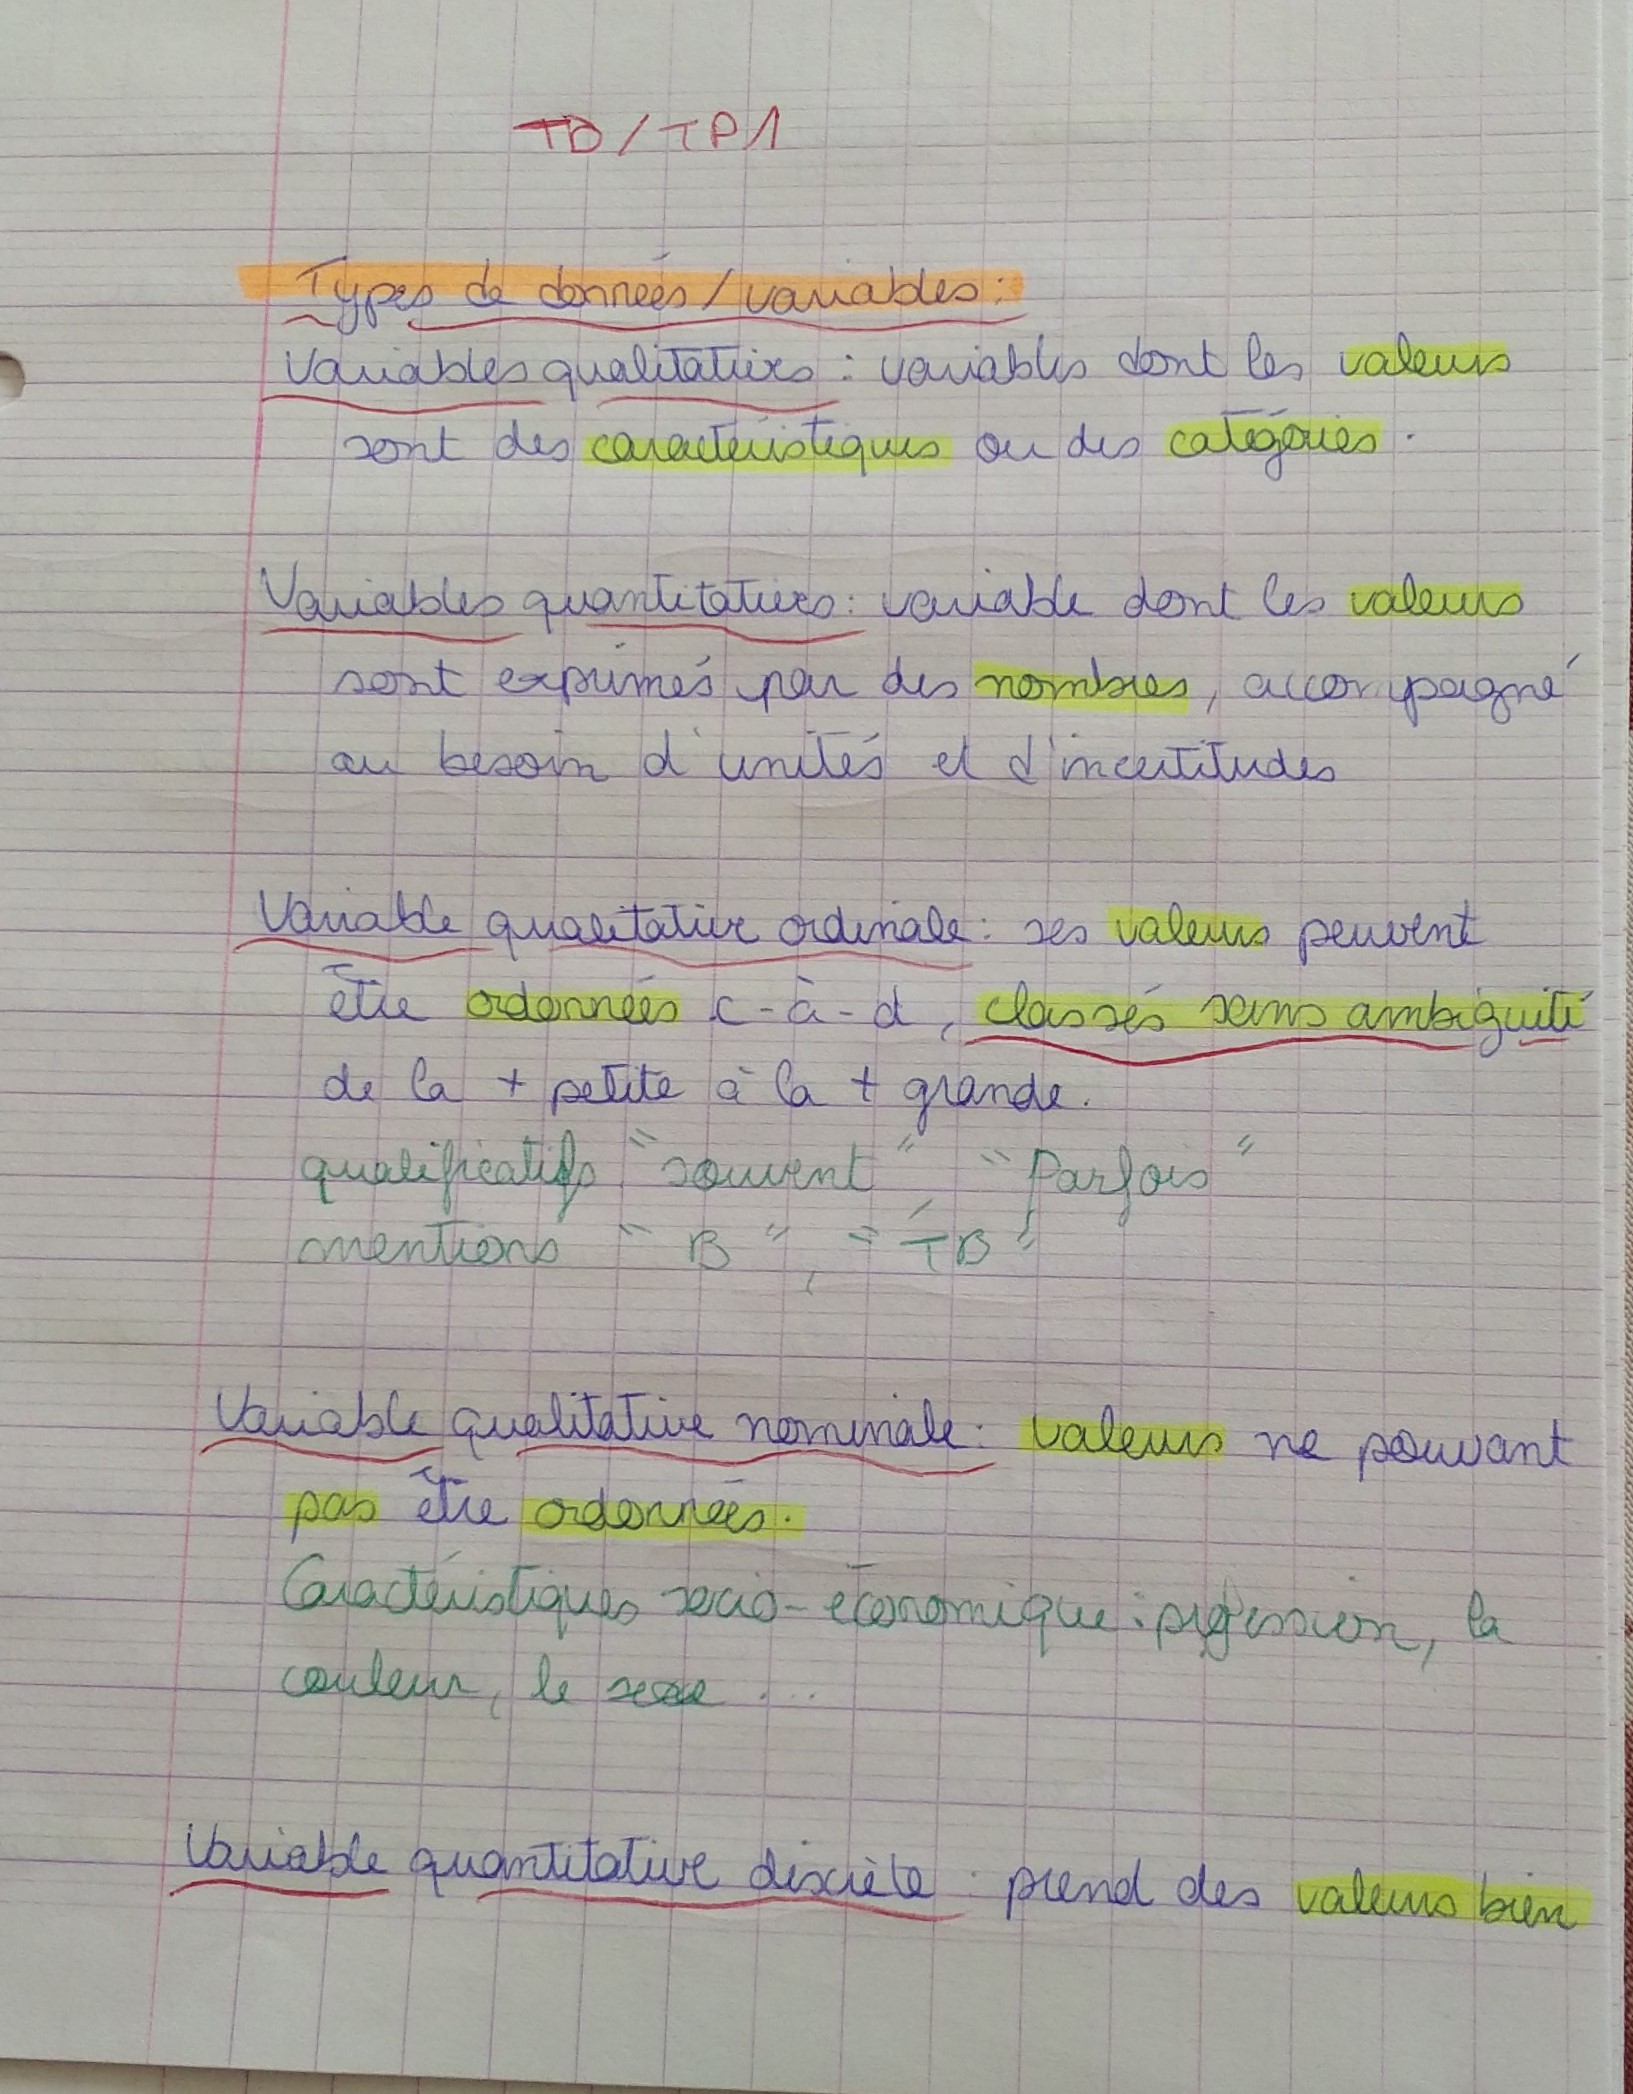 TD / TP1
Types de données / variables :
Variables qualitatives : variables dont les valeurs
sont des caractéristiques ou des catégories.
Variables quantitatives : variable dont les valeurs
sont exprimés par des nombres, accompagné
au besoin d'unités et d'incertitudes
Variable qualitative ordinale : ses valeurs peuvent
être ordonnées c-à-d, classés sans ambiguité
de la + petite à la + grande.
qualificatifs "souvent", "Parfois"
mentions "B", "TB"
Variable qualitative nominale : valeurs ne pouvant
pas être ordonnées.
Caractéristiques socio-économique : profession, la
couleur, le sexe ...
Variable quantitative discrète : prend des valeurs bien